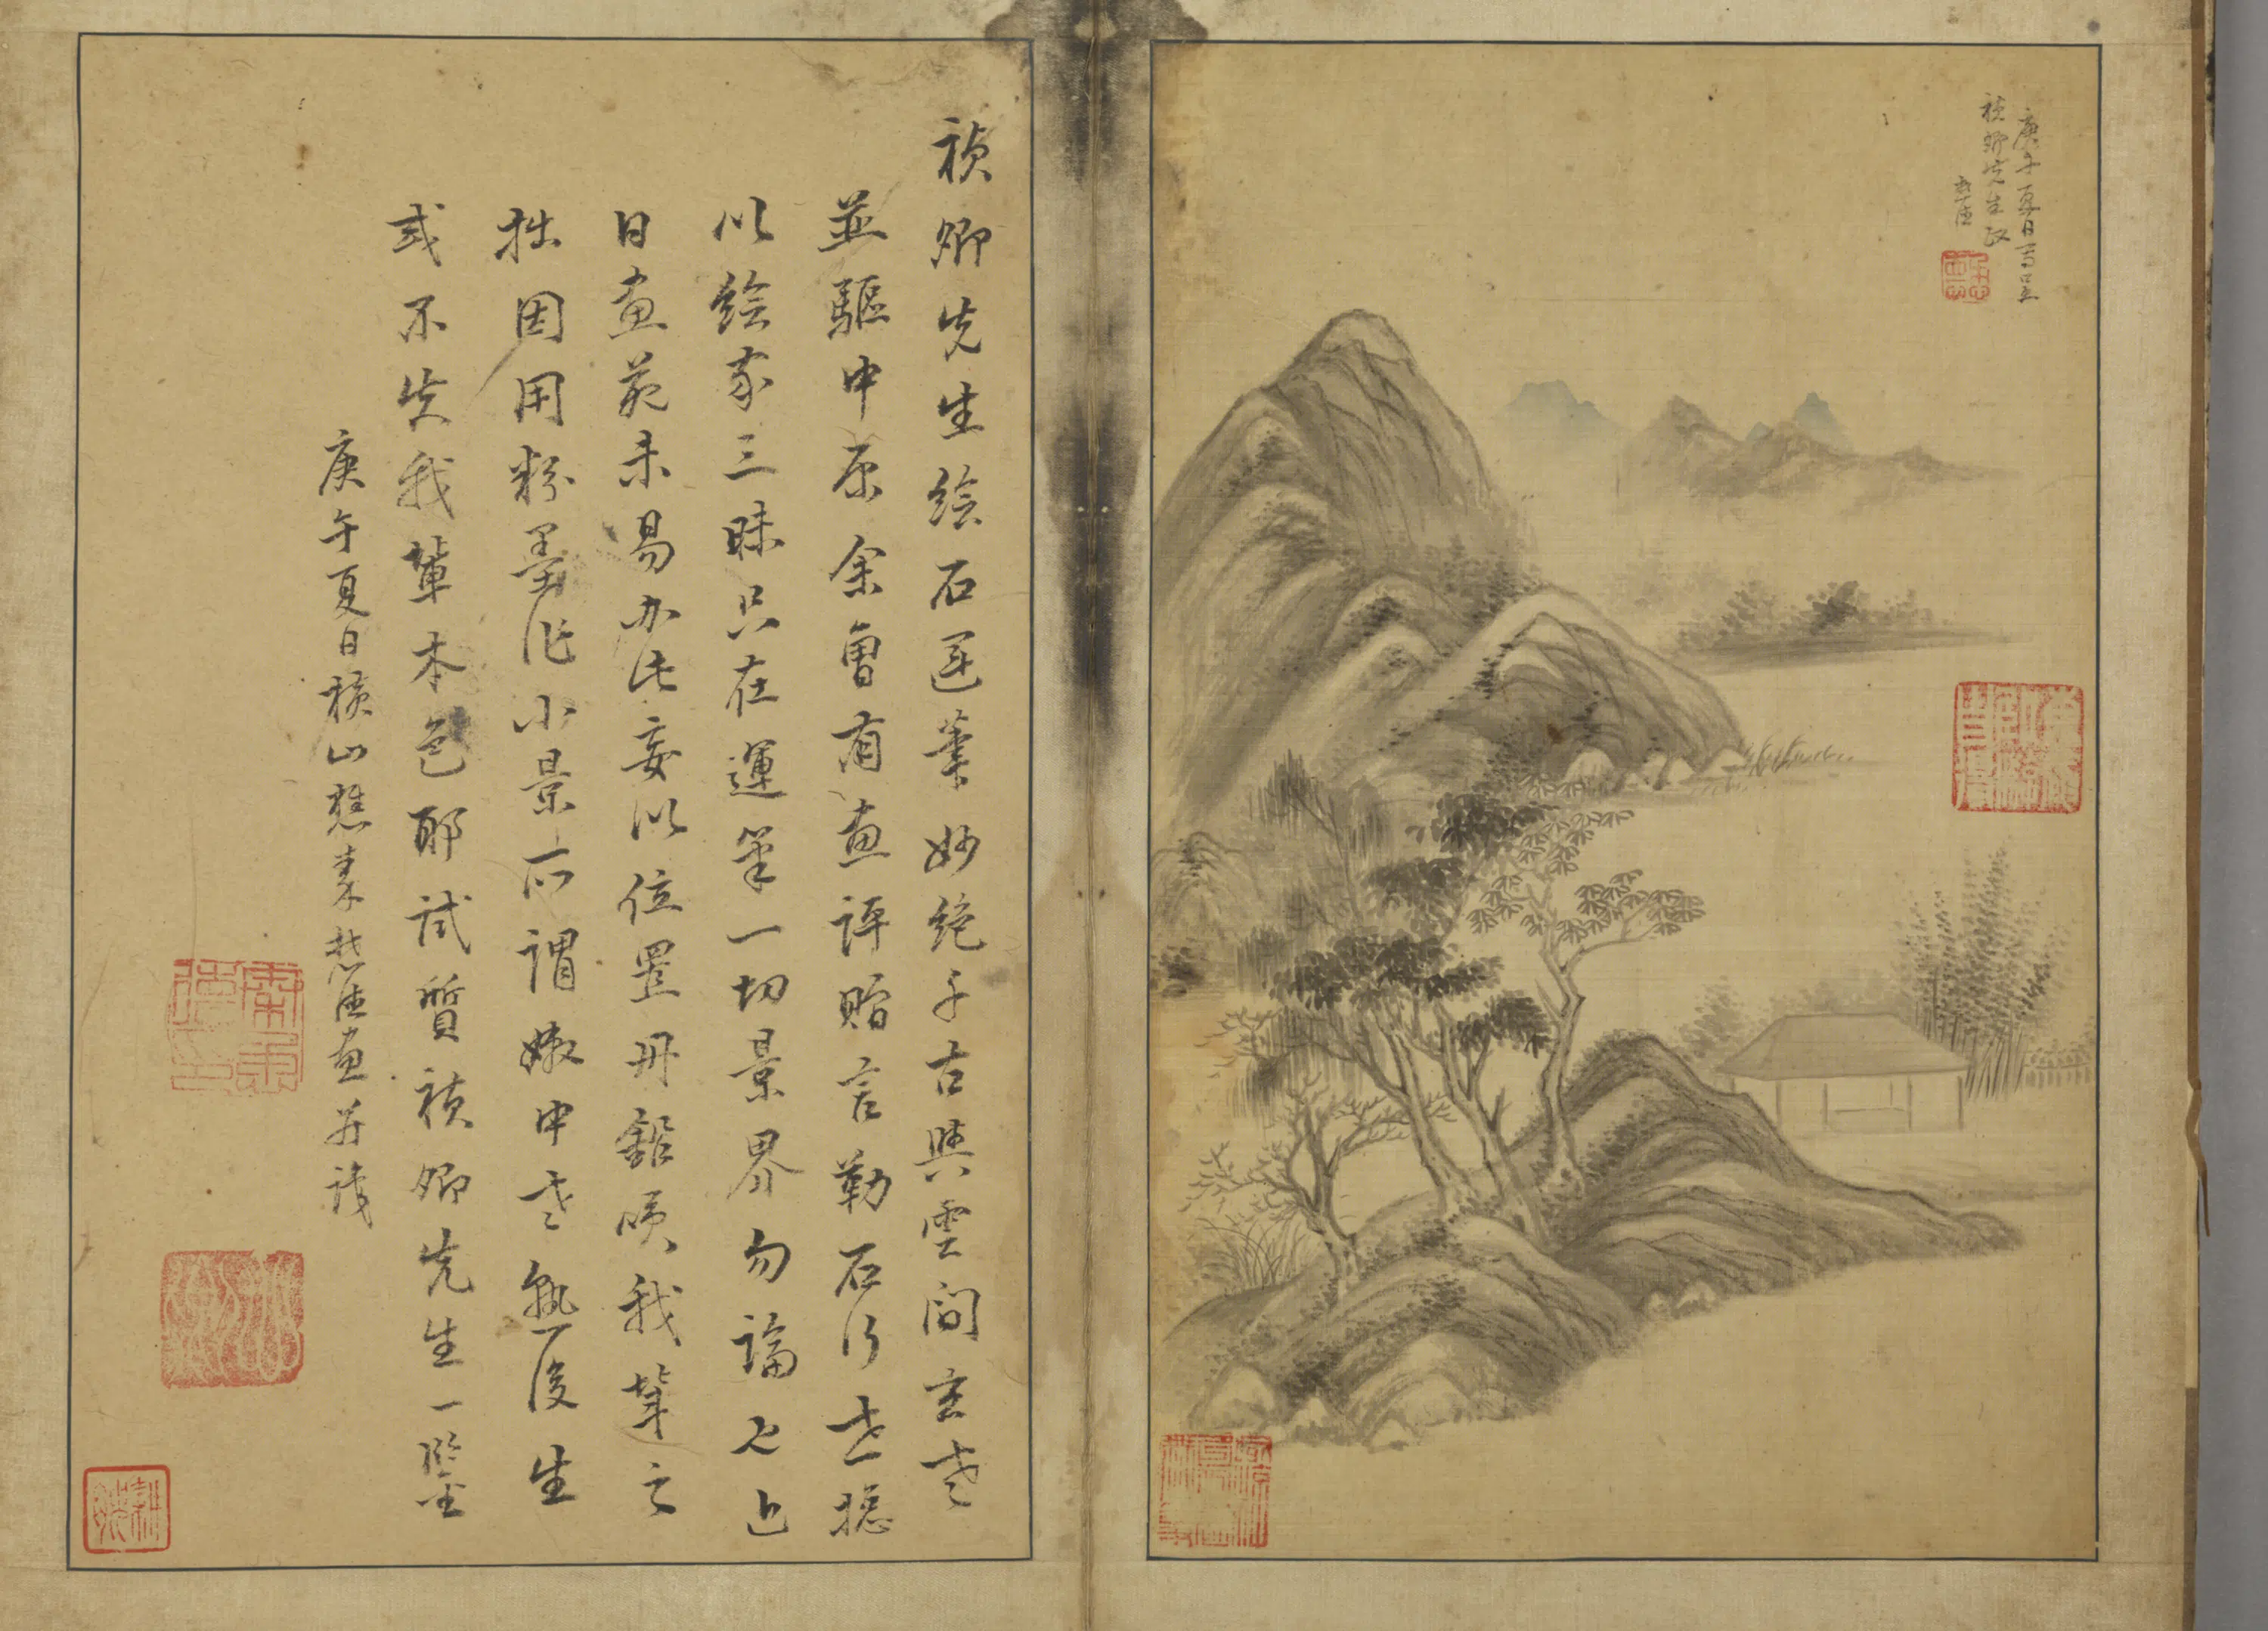 庚午夏日写呈
禎卿先生政
秉德
禎卿先生繪石運筆妙絕千古與雲間玄老
並驅中原余曾有畫評贈言勒石行世摠
以繪家三昧只在運筆一切景界勿論也近
日畫苑未易办此妄以位置丹鉛唉我輩之
拙因用粉墨作小景所謂嫩中老熟後生
或不失我輩本色耶試質禎卿先生一鑒
庚午夏日 山樵秉德畫并識